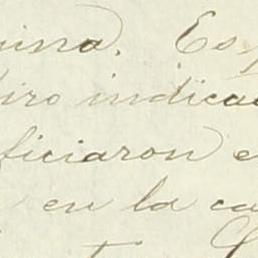 uina. Es
iro indica
ficiaron e
en la ca